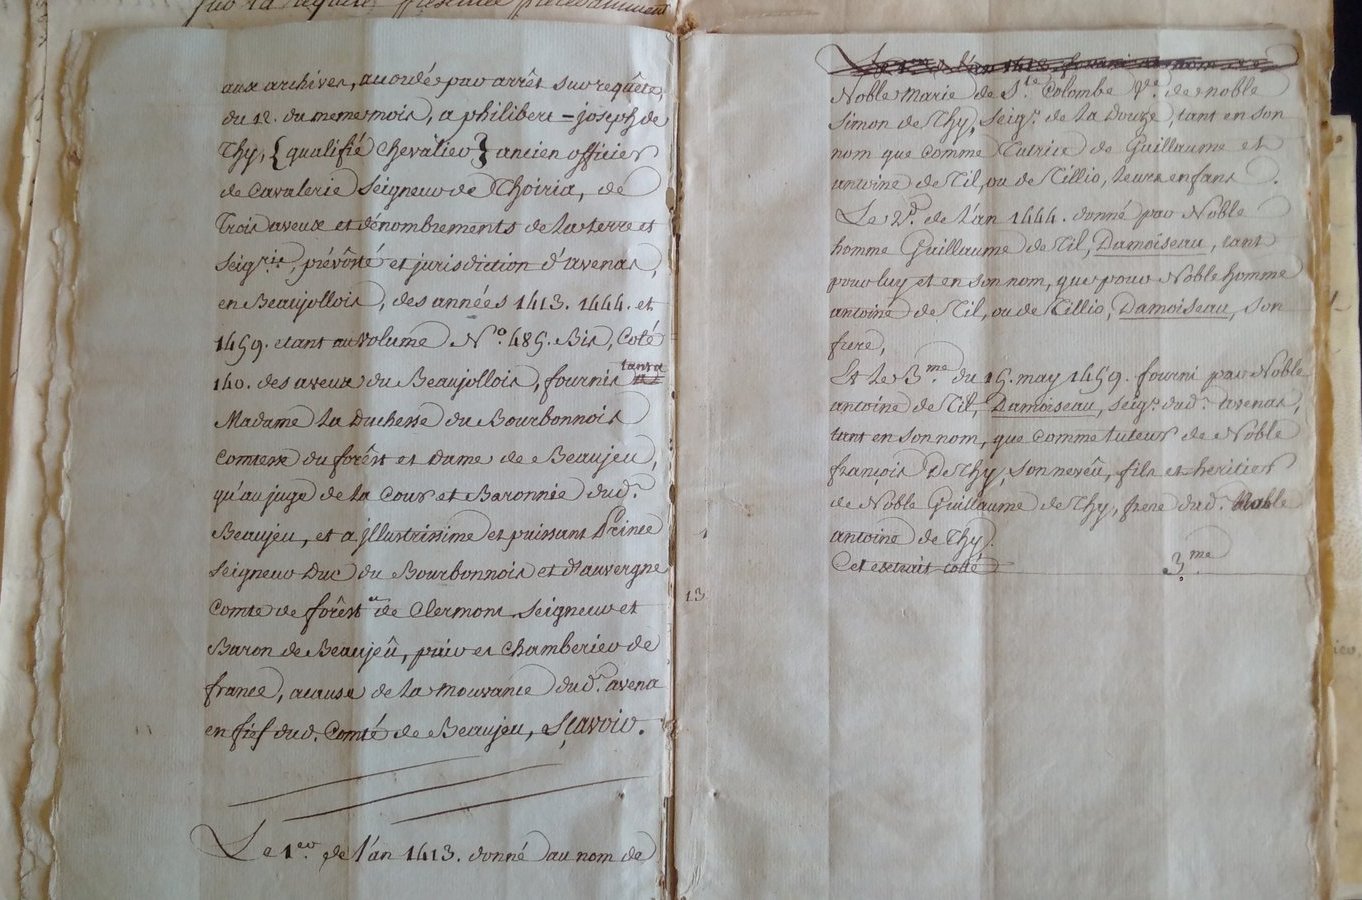 sur la requête présentée précédamment
aux archives, accordée par arrêt sur requête,
du 12. du meme mois, a philibert = joseph de
Thy, {qualifié chevalier} ancien officier
de Cavalerie Seigneur de Thoiria, de
Trois aveux et dénombrements de la terre et
Seig.rie, prévôté et jurisdiction d'avenas,
en Beaujollois, des années 1413. 1444. et
1459. etant au volume N.o 485. Bis, Coté
140. des aveux du Beaujollois, fournis tant a
Madame la Duchesse du Bourbonnois
Comtesse du forêst et Dame de Beaujeu,
qu'au juge de la Cour et Baronnie dud.
Beaujeu, et a jllustrissime et puissant Prince
Seigneur Duc du Bourbonnois et d'auvergne
Comte de forêst de Clermont, Seigneur et
Baron de Beaujeû, pair et Chamberier de
france, acause de la mouvance dud. avena
en fief dud. Comté de Beaujeu, Sçavoir.
Le 1.er de l'an 1413. donné au nom de
Noble Marie de S.te Colombe V.e de noble
Simon de Thy, Seig.r de la Douze, tant en son
nom que comme Tutrice de Guillaume et
antoine de Til, ou de Tillio, leurs enfans.
Le 2.d de l'an 1444. donné par Noble
homme Guillaume de Til, Damoiseau, tant
pour luy et en son nom, que pour Noble homme
antoine de Til, ou de Tillio, Damoiseau, son
frere,
Et le 3.me du 15. may 1459. fourni par Noble
antoine de Til, Damoiseau, seig.r dud. avenas,
tant en son nom, que comme tuteur de Noble
françois De Thy, son neveû, fils et heritier
de Noble Guillaume de Thy, frere dud. Noble
antoine de Thy.
Cet extrait cotté 3.me
13